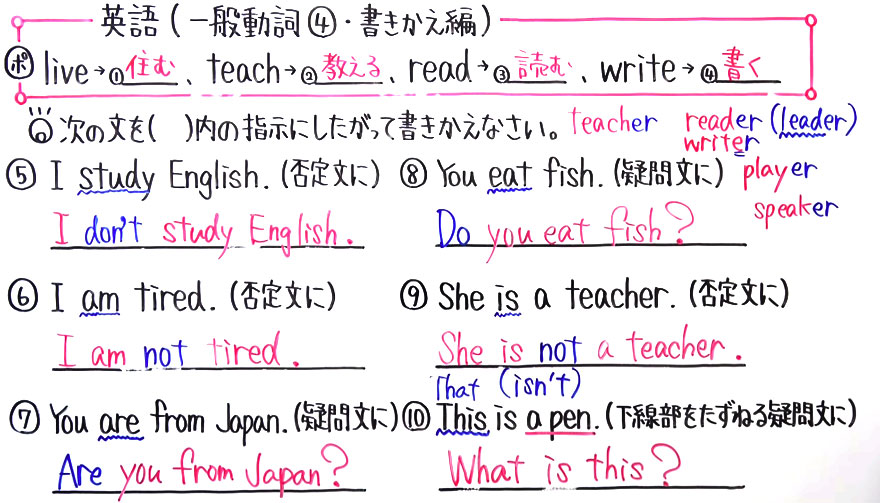 英語(一般動詞④・書きかえ編)
ポ live→①住む、teach→②教える、read→③読む、write→④書く
次の文を( )内の指示にしたがって書きかえなさい。
teacher reader (leader)
writer
player
speaker
⑤ I study English. (否定文に)
I don't study English.
⑥ I am tired. (否定文に)
I am not tired.
⑦ You are from Japan. (疑問文に)
Are you from Japan?
⑧ You eat fish. (疑問文に)
Do you eat fish?
⑨ She is a teacher. (否定文に)
She is not a teacher.
(isn't)
That
⑩ This is a pen. (下線部をたずねる疑問文に)
What is this?